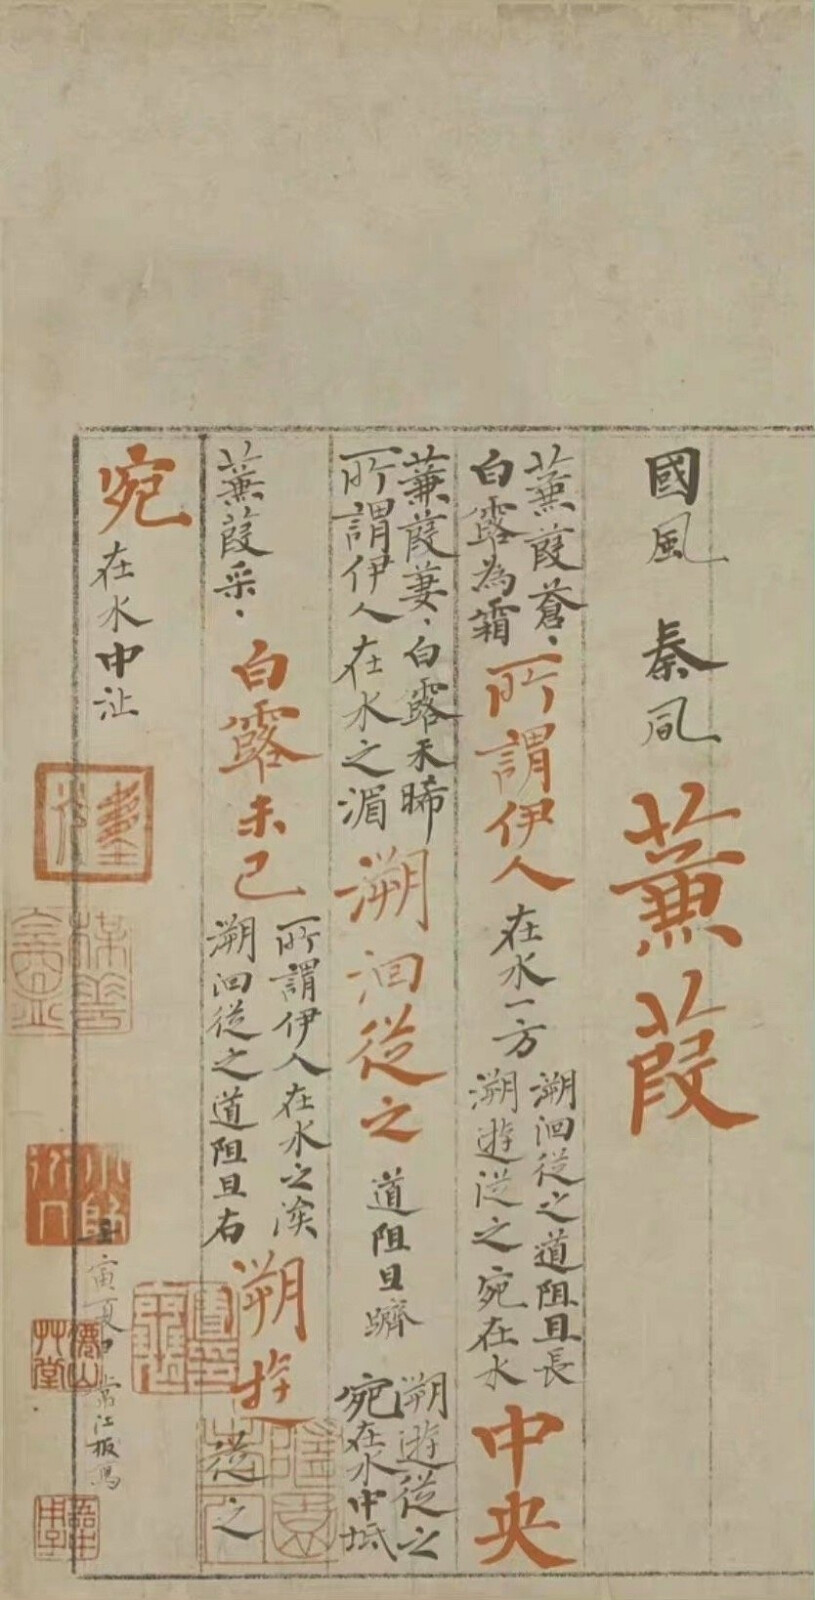 國風 秦風 蒹葭
蒹葭蒼、
白露為霜
所謂伊人
在水一方
溯洄從之道阻且長
溯遊從之宛在水
中央
蒹葭萋、白露未晞
所謂伊人在水之湄
溯洄從之
道阻且躋
溯遊從之
宛在水中坻
蒹葭采、
白露未已
所謂伊人在水之涘
溯洄從之道阻且右
溯遊從之
宛在水中沚
寅夏
常江